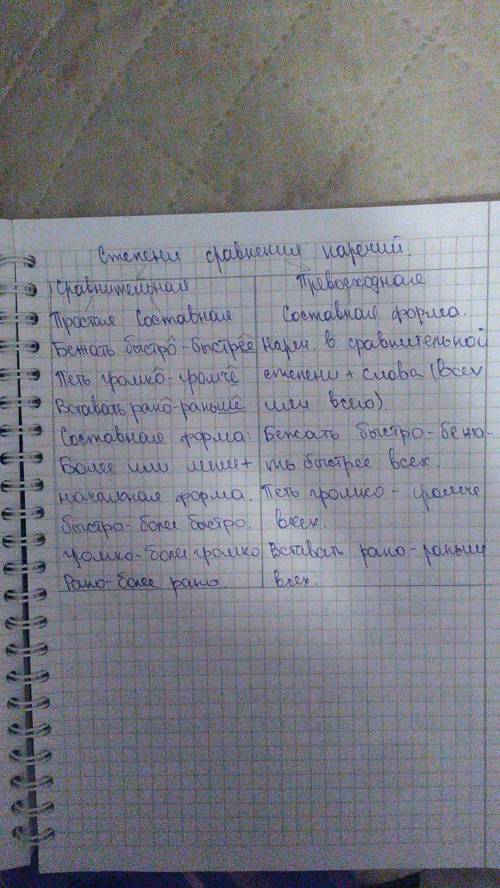 Степени сравнения наречий.
Сравнительная
Простая Составная
Бежать быстро-быстрее
Петь громко-громче
Вставать рано-раньше
Составная форма:
Более или менее+
начальная форма.
быстро-более быстро.
громко-более громко
Рано-более рано.
Превосходная
Составная форма.
Нареч. в сравнительной
степени + слова (всех
или всего)
Бежать быстро-бежа-
ть быстрее всех.
Петь громко - громче
всех.
Вставать рано-раньше
всех.